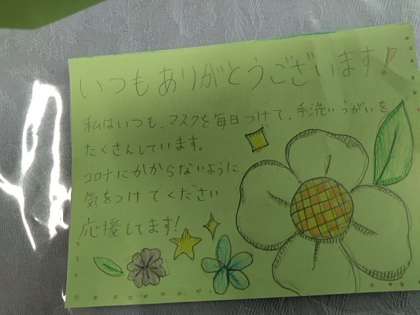 いつもありがとうございます!
私はいつも、マスクを毎日つけて、手洗いうがいを
たくさんしています。
コロナにかからないように
気をつけてください
応援してます!